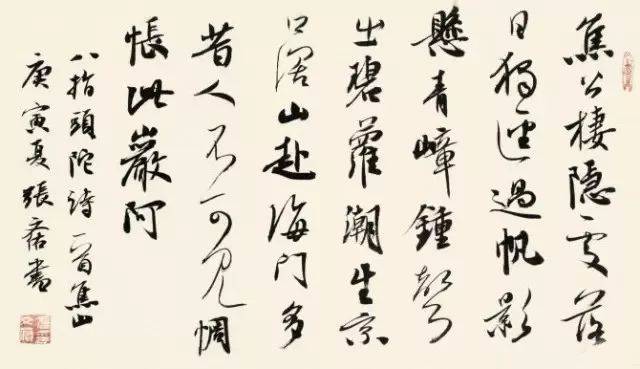 焦公棲隱處落
日獨逕過帆影
懸青嶂鍾聲
出碧蘿潮生京
口闊山赴海門多
昔人不可見惆
悵此巖阿
八指頭陀詩一首焦山
庚寅夏張書